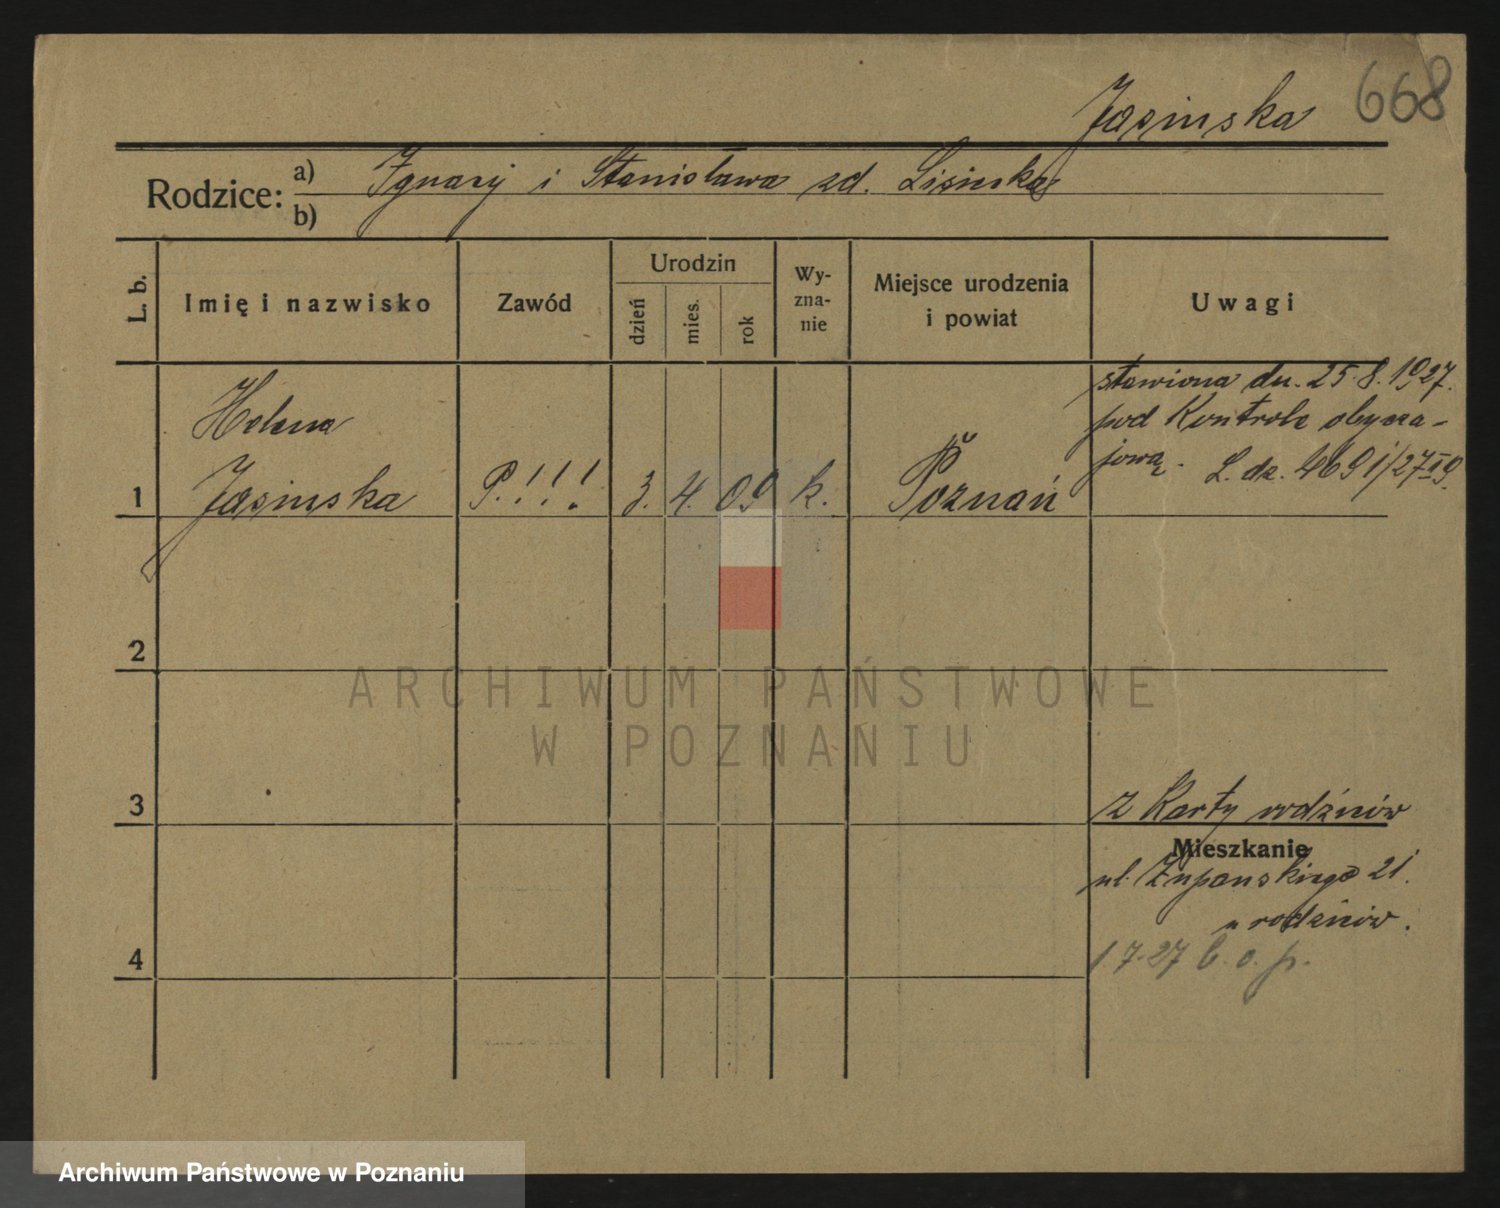 668
Jasinska
Rodzice: a) Ignacy i Stanisława zd. Lisiecka
b)
L. b.
Imię i nazwisko
Zawód
Urodzin
dzień
mies.
rok
Wy-
zna-
nie
Miejsce urodzenia
i powiat
Uwagi
stawiona dn. 25.8.1927.
pod Kontrolę obycza-
jową. L. dz. 4691/27 II 9.
Helena
1 Jasinska P.!!! 3. 4. 09 k. Poznań
2
3
4
z Karty rodziców
Mieszkanie
ul. Żupańskiego 21.
u rodziców.
1 7.27 b. o. p.
ARCHIWUM PAŃSTWOWE
W POZNANIU
Archiwum Państwowe w Poznaniu